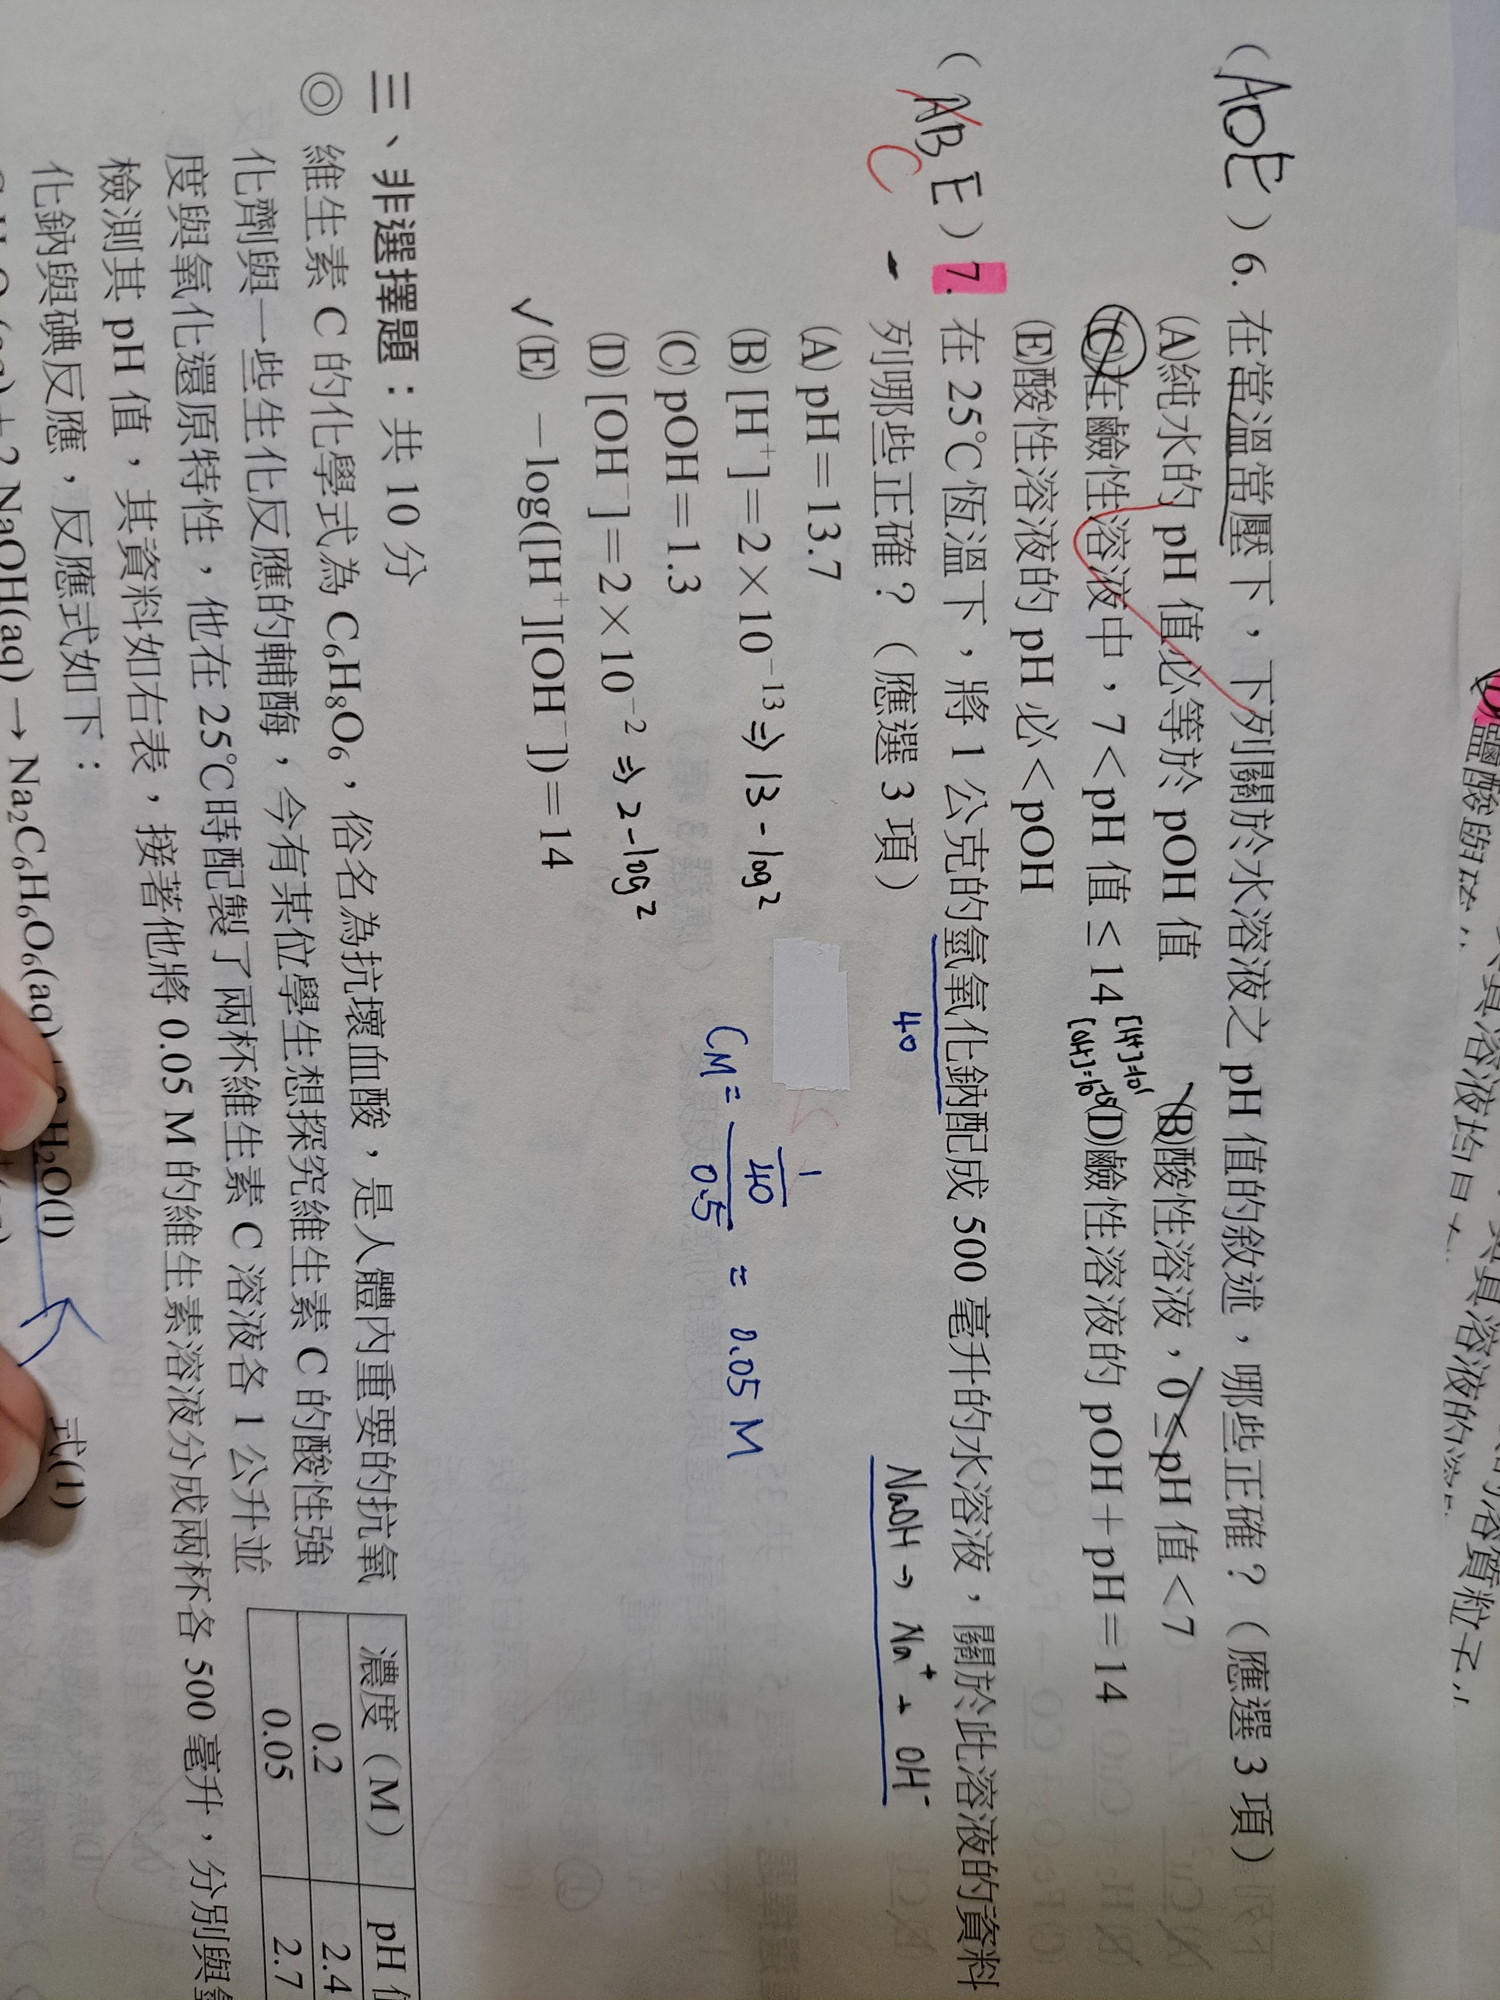 (ADE) 6. 在常溫常壓下，下列關於水溶液之 pH 值的敘述，哪些正確？（應選 3 項）
(A)純水的 pH 值必等於 pOH 值 (B)酸性溶液，0≤pH 值<7
(C)在鹼性溶液中，7<pH 值≤14 (D)鹼性溶液的 pOH＋pH＝14
(E)酸性溶液的 pH 必<pOH
(ABE) 7. 在 25℃恆溫下，將 1 公克的氫氧化鈉配成 500 毫升的水溶液，關於此溶液的資料
C
列哪些正確？（應選 3 項）
40
NaOH → Na⁺ + OH⁻
(A) pH＝13.7
(B) [H⁺]＝2×10⁻¹³ ⇒ 13 - log2
(C) pOH＝1.3
CM = 1/40 / 0.5 = 0.05 M
(D) [OH⁻]＝2×10⁻² ⇒ 2 - log2
✓(E) －log([H⁺][OH⁻])＝14
三、非選擇題：共 10 分
◎ 維生素 C 的化學式為 C₆H₈O₆，俗名為抗壞血酸，是人體內重要的抗氧
化劑與一些生化反應的輔酶，今有某位學生想探究維生素 C 的酸性強
度與氧化還原特性，他在 25℃時配製了兩杯維生素 C 溶液各 1 公升並
檢測其 pH 值，其資料如右表，接著他將 0.05 M 的維生素溶液分成兩杯各 500 毫升，分別與
化鈉與碘反應，反應式如下：
濃度（M） pH
0.2 2.4
0.05 2.7
2 NaOH(aq) → Na₂C₆H₆O₆(aq) H₂O(l) 式(1)